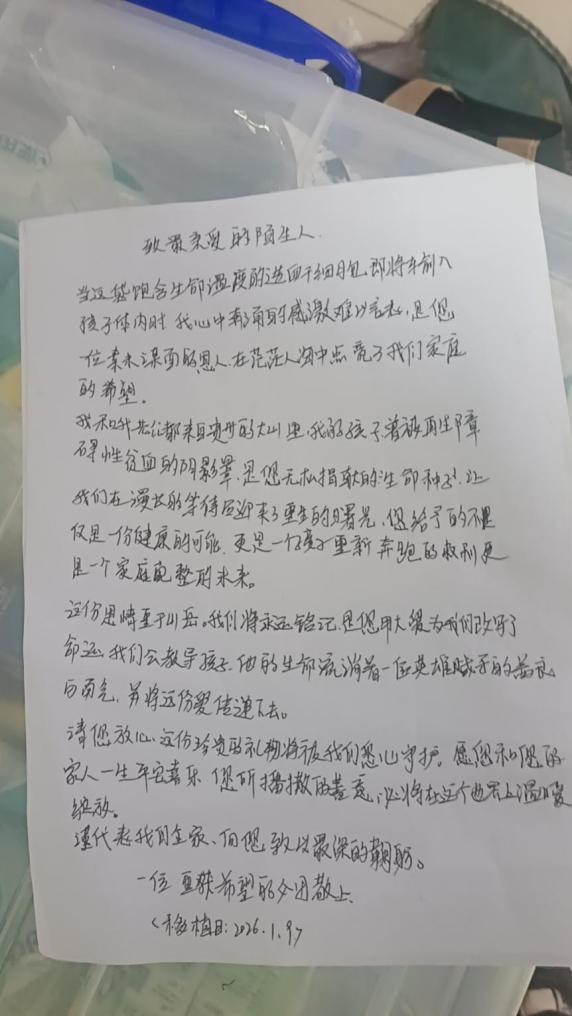 致最亲爱的陌生人.
当这袋饱含生命温度的造血干细胞即将车前入
孩子体内时 我心中翻涌的感激难以言表,是您
一位素未谋面的恩人.在茫茫人海中点亮了我们家庭
的希望。
我和我先让都来自贵州的大山里,我的孩子曾被再生障
碍性贫血的阴影笼,是您无私捐献的生命种子,让
我们在漫长的等待后迎来了重生的曙光,您给予的不是
仅是一份健康的可能,更是一个孩子重新奔跑的权利更
是一个家庭完整的未来。
这份恩情重于山岳。我们将永远铭记,是您用大爱为我们改写了
命运,我们会教导孩子.他的生命流淌着一位英雄赋予的善良
与勇气,并将这份爱传递下去。
请您放心.这份珍贵的礼物将被我们悉心守护。愿您和您的
家人一生平安喜乐 您所播撒的善意,必将在这个世界上温暖
绽放。
谨代表我们全家、向您致以最深的鞠躬。
一位重获希望的父母敬上
<移植日:2026.1.9>